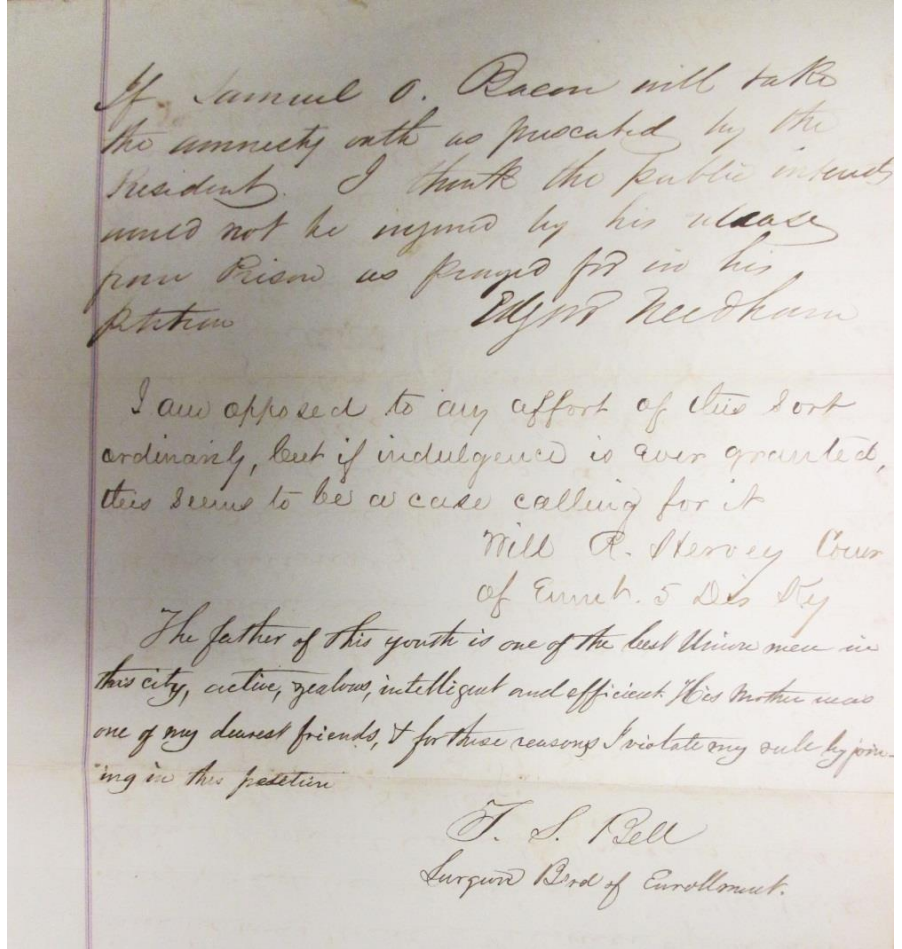 If Samuel O. Bacon will take
the amnesty oath as prescribed by the
President. I think the public interests
would not be injured by his release
from Prison as prayed for in his
petition
Edgar Needham
I am opposed to any affort of this sort
ordinarily, but if indulgence is ever granted,
this seems to be a case calling for it
Will R. Hervey Com
of Enmt. 5 Dis Ky
The father of this youth is one of the best Union men in
this city, active, zealous, intelligent and efficient. His mother was
one of my dearest friends, & for these reasons I violate my rule by join-
ing in this petition
T. S. Bell
Surgeon Bord of Enrollment.